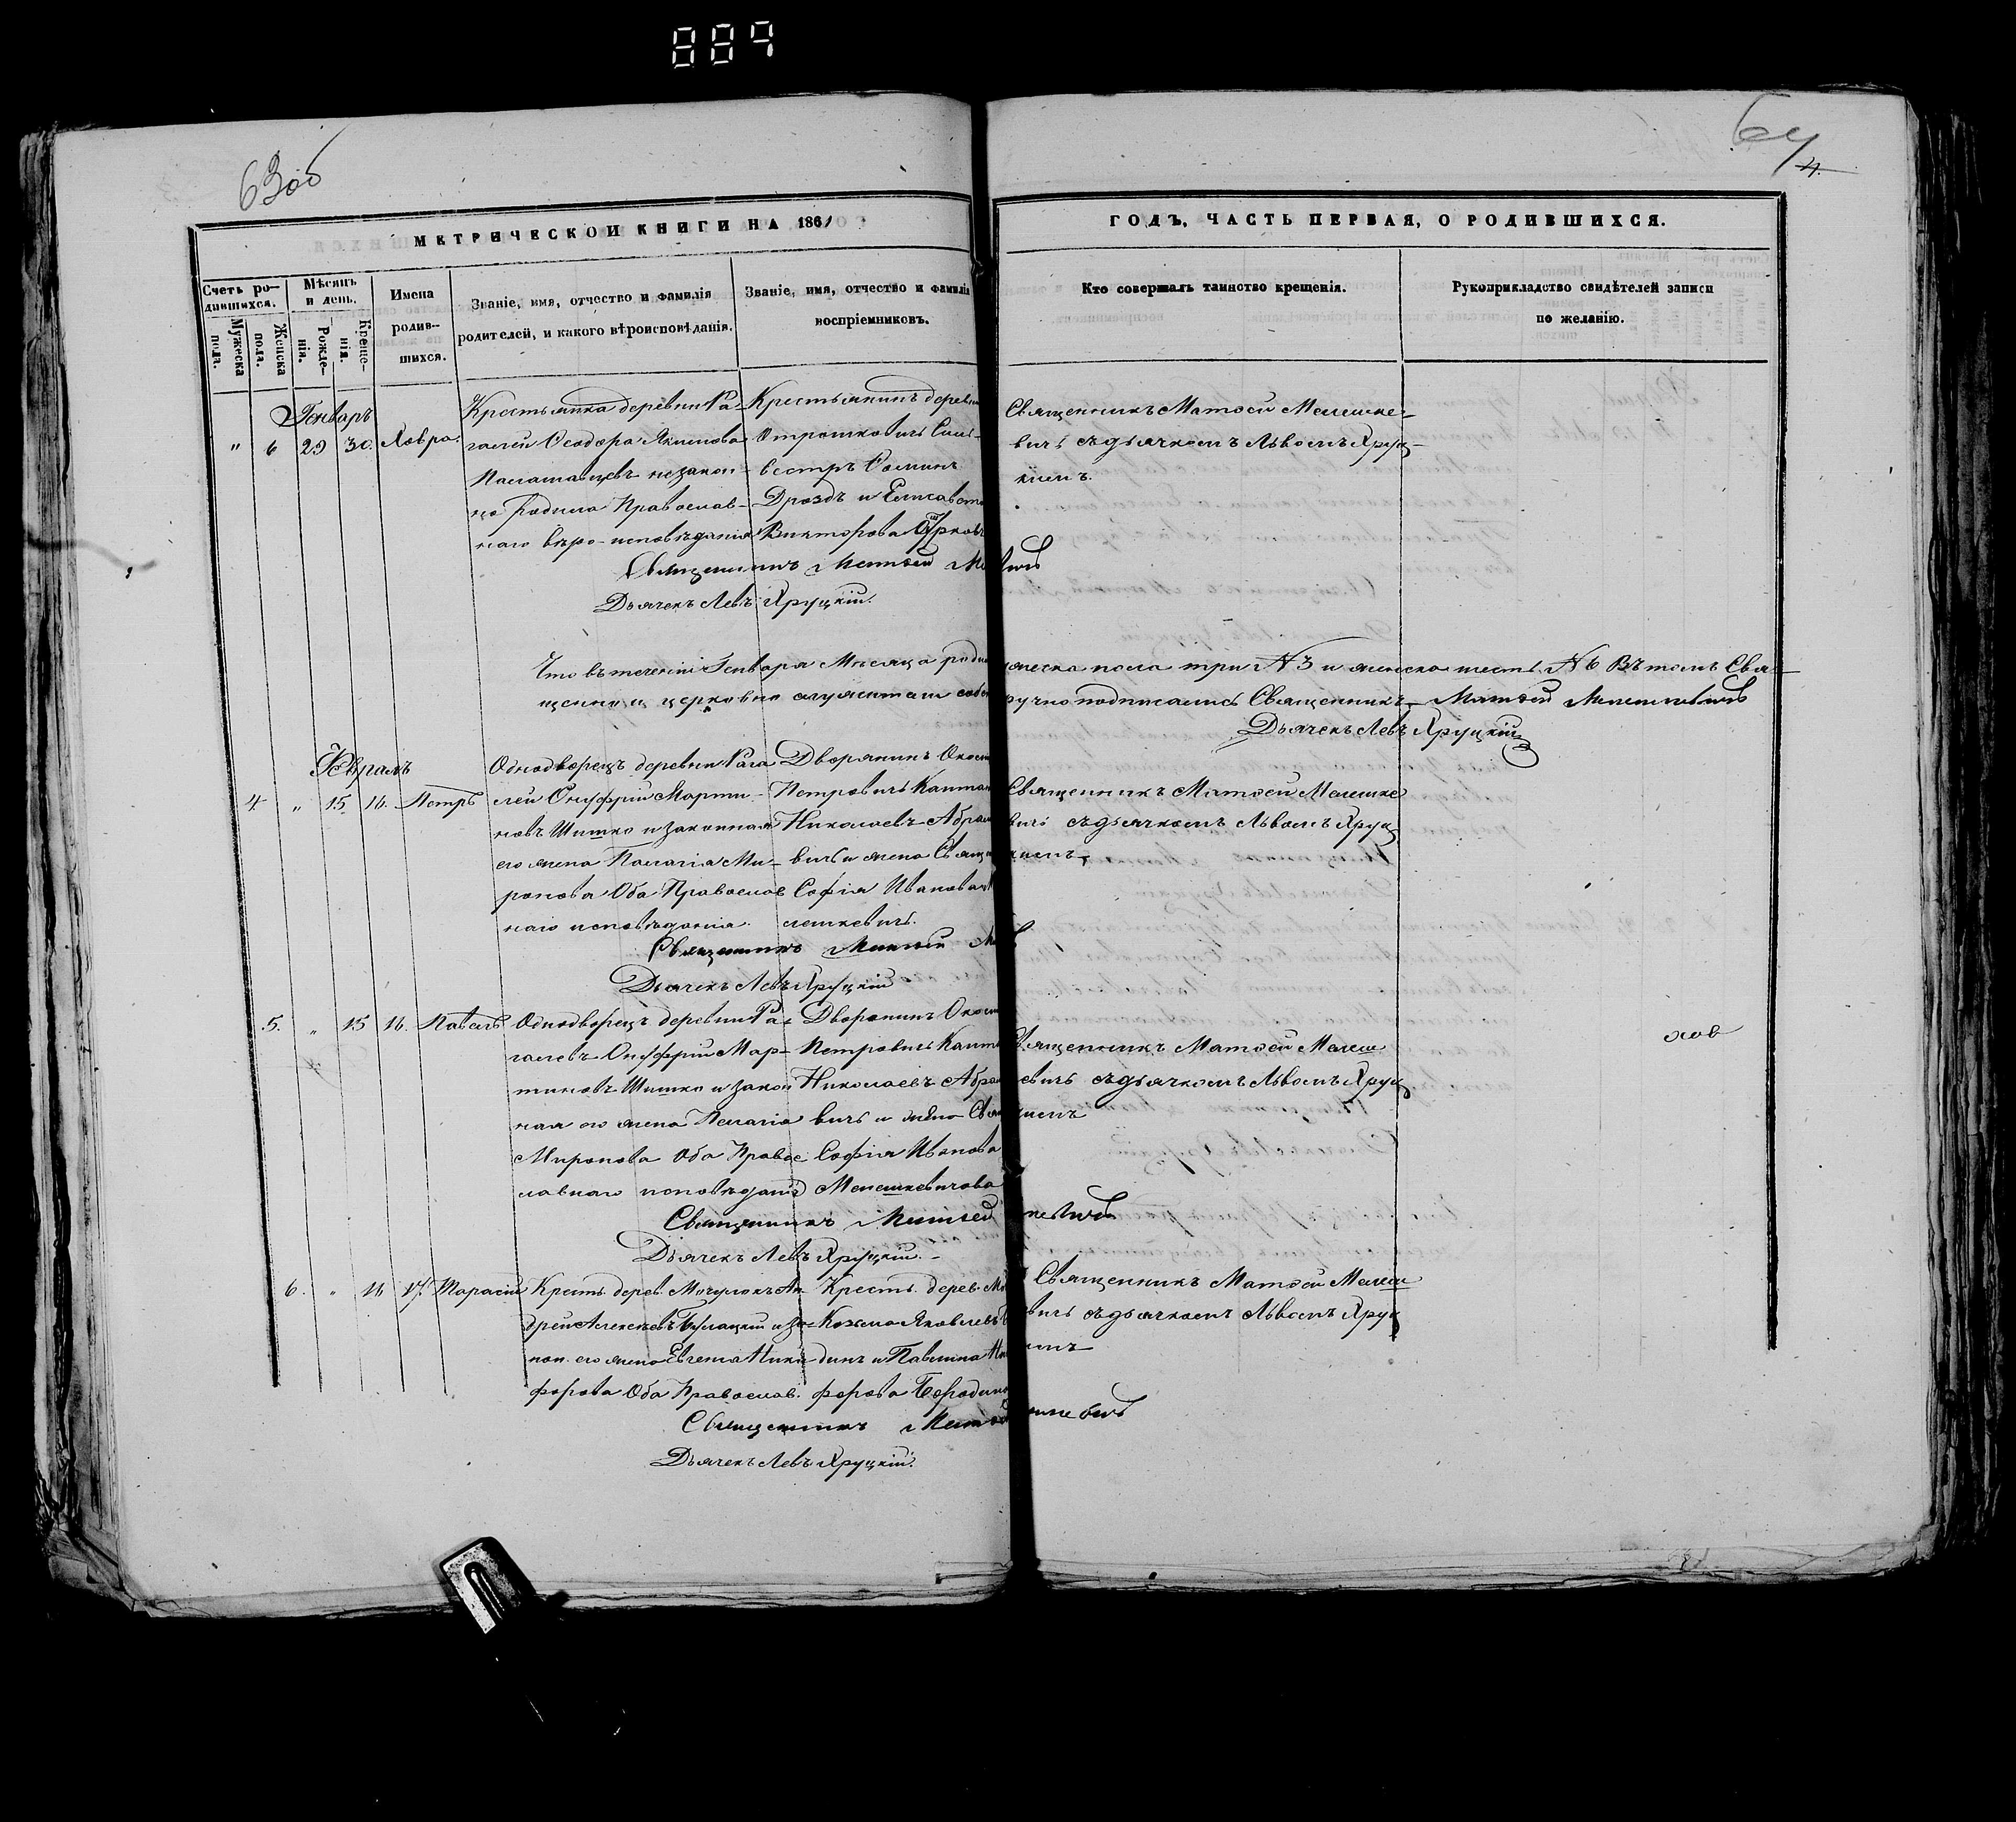 889
63об
64
4.
МЕТРИЧЕСКОЙ КНИГИ НА 1861
ГОДЪ, ЧАСТЬ ПЕРВАЯ, О РОДИВШИХСЯ.
Счетъ ро-
дившихся.
Мужеска
пола.
Женска
пола.
Мѣсяцъ
и день.
Рожде-
нія.
Креще-
нія.
Имена
родив-
шихся.
Званіе, имя, отчество и фамилія
родителей, и какого вѣроисповѣданія.
Званіе, имя, отчество и фамилія
воспріемниковъ.
Кто совершалъ таинство крещенія.
Рукоприкладство свидѣтелей записи
по желанію.
Январь
" 6 29 30.
Крестьянка деревни Ра-
галей Ѳеодора Якимова
незакон-
но родила Православ-
наго вѣро-исповѣданія
Крестьянинъ деревни
Отрошковичь Силь-
вестръ Ѳоминъ
Дроздъ и Елисавета
Викторова
Священникъ Матѳей Мелешке-
вичь съ дьячкомъ Львомъ Хруц-
кимъ.
Священникъ Матѳей
Дьячекъ Левъ Хруцкій.
Что въ теченіи Генваря Мѣсяца роди мужеска пола три N 3 и женска шесть N 6 Въ томъ Свя-
щенно и церковно служители соб ручно подписались Священникъ Матѳей Мелешкевичь
Дьячекъ Левъ Хруцкій
Февраль
4 " 15 16. Петръ
Однодворецъ деревни Рага
лей Онуфрій Марти-
новъ Шишко и законная
его жена Палагія Ми-
ронова Оба Православ
наго исповѣданія.
Дворянинъ
Петровичь
Николаевъ Абрам
вичь и жена Священ
Софія Иванова
лешкевичь.
Священникъ Матѳей Мелешке
вичь съ дьячкомъ Львомъ Хруц
кимъ.
Священникъ Матѳей
Дьячекъ Левъ Хруцкій
5. " 15 16. Павелъ
Однодворецъ деревни Ра-
галевъ Онуфрій Мар-
тиновъ Шишко и закон
ная его жена Пелагія
Миронова Оба Правос
лавнаго исповѣданія
Дворянинъ
Петровичь
Николаевъ Абрам
вичь и жена Свя
Софія Иванова
Мелешкевичова
Священникъ Матѳей Мелеш
кевичь съ дьячкомъ Львомъ Хруц
кимъ
Священникъ Матѳей
Дьячекъ Левъ Хруцкій.
6. " 16 17. Тарасій
Кресть. дерев. Ан
дрей Алексѣевъ и за-
кон. его жена Евгенія Ники
форова Оба Православ.
Кресть. дерев.
Козьма Яковлевъ
динъ и Павлина Ни
форова Бородина
Священникъ Матѳей Мелеш
кевичь съ дьячкомъ Львомъ Хруц
кимъ
Священникъ
Дьячекъ Левъ Хруцкій.